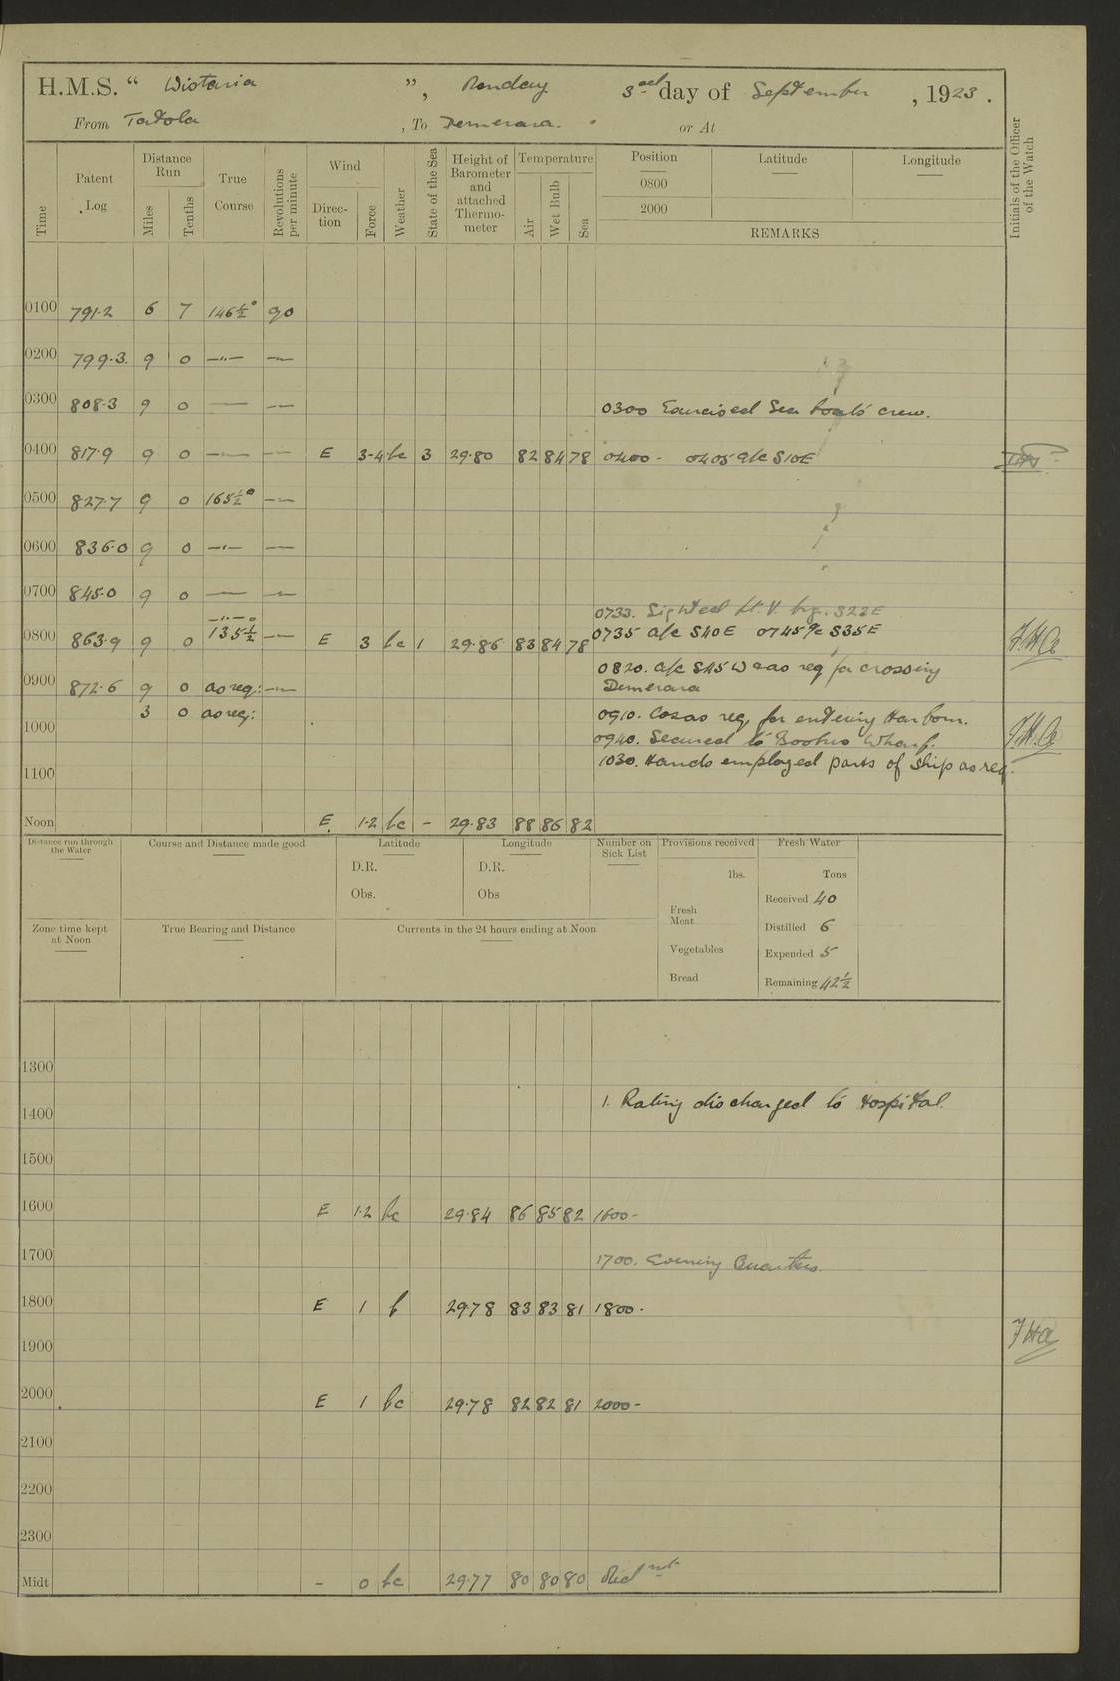 H.M.S. “ Wistaria ”, Monday 3rd day of September, 1923.
From Tortola, To Demerara. or At
Time
Patent Log
Distance Run
Miles
Tenths
True Course
Revolutions per minute
Wind
Direction
Force
Weather
State of the Sea
Height of Barometer and attached Thermometer
Temperature
Air
Wet Bulb
Sea
Position
0800
2000
Latitude
Longitude
REMARKS
Initials of the Officer of the Watch
0100 791.2 6 7 146½° 90
0200 799.3 9 0 —"— —
0300 808.3 9 0 — — 0300 Exercised Sea boats crew.
0400 817.9 9 0 — — E 3-4 bc 3 29.80 82 84 78 0400 - 0405 a/c S10E
0500 827.7 9 0 165½° —
0600 836.0 9 0 —"— —
0700 845.0 9 0 — —
0733. Sighted Lt. V. brg. S22E
—"—
0800 863.9 9 0 135½° — E 3 bc 1 29.86 83 84 78 0735 a/c S40E 0745 a/c S35E
0820. a/c S45W & as req for crossing
0900 872.6 9 0 as req: — Demerara
3 0 as req: 0910. Co. as req. for entering Harbour.
1000 0940. Secured to Bookers Wharf.
1100 1030. Hands employed parts of ship as req.
Noon E 1-2 bc - 29.83 88 86 82
Distance run through the Water
Course and Distance made good
Latitude
D.R.
Obs.
Longitude
D.R.
Obs
Number on Sick List
Provisions received
lbs.
Fresh Meat
Vegetables
Bread
Fresh Water
Tons
Received 40
Distilled 6
Expended 5
Remaining 42½
Zone time kept at Noon
True Bearing and Distance
Currents in the 24 hours ending at Noon
1300
1400 1. Rating discharged to Hospital.
1500
1600 E 1-2 bc 29.84 86 85 82 1600-
1700 1700. Evening Quarters.
1800 E 1 b 29.78 83 83 81 1800-
1900
2000 E 1 bc 29.78 82 82 81 2000-
2100
2200
2300
Midt - 0 bc 29.77 80 80 80 Midnt